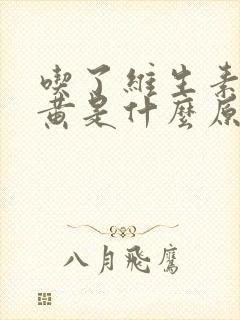 喫了維生素
黃是什麼原
八月飛鷹